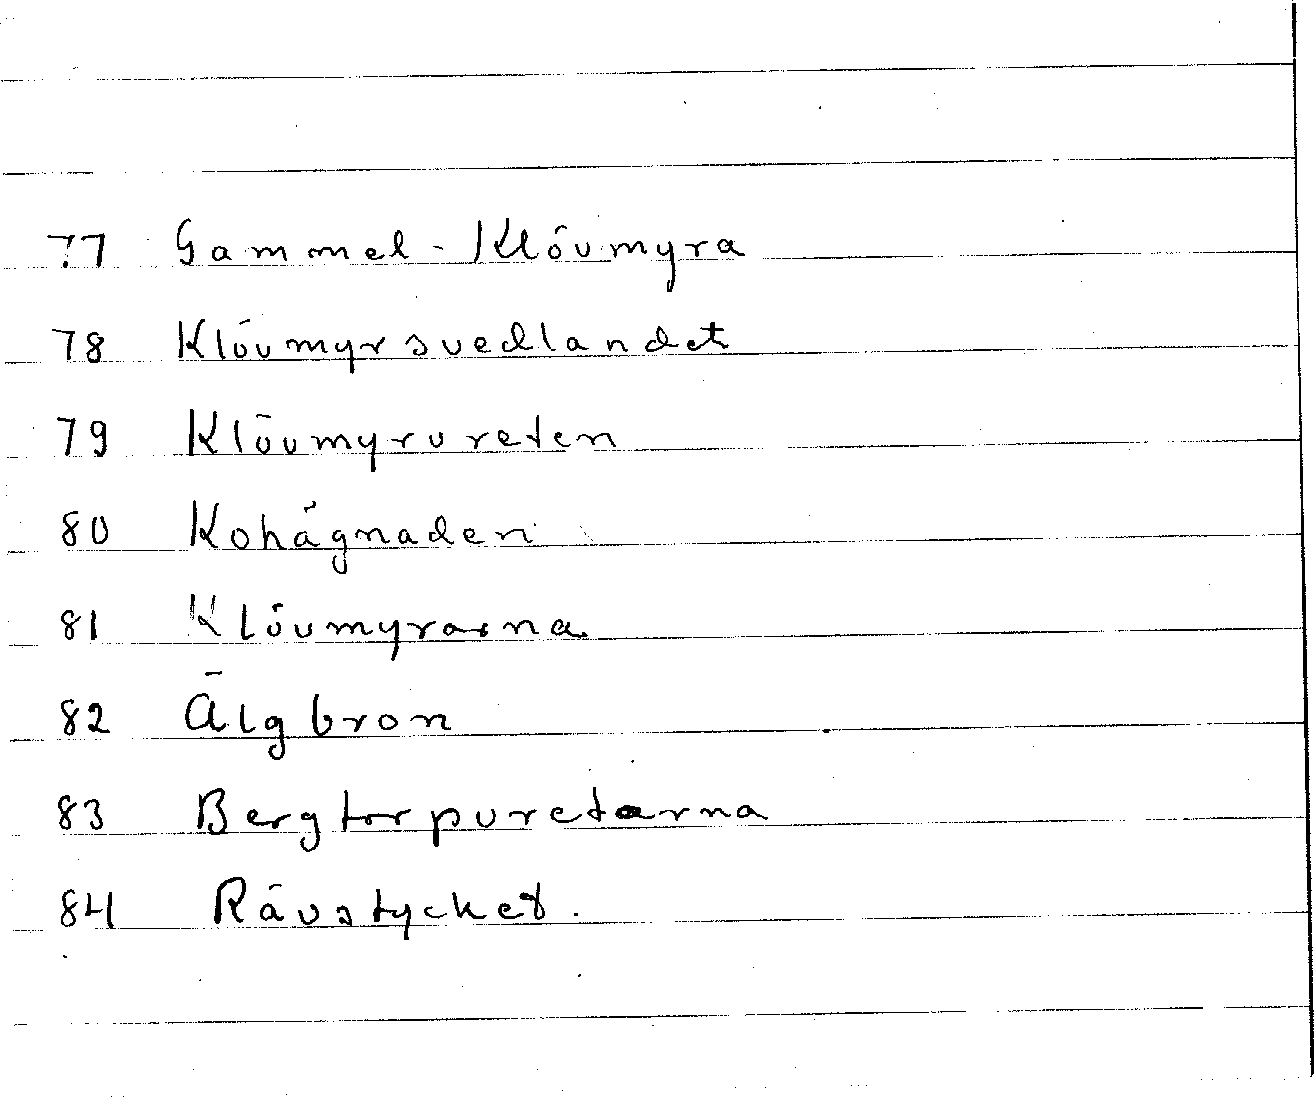 77 Gammel-Klövmyra
78 Klövmyrsvedlandet
79 Klövmyrvreten
80 Kohägnaden
81 Klövmyrarna
82 Älgbron
83 Bergtorpvretarna
84 Rävstycket.